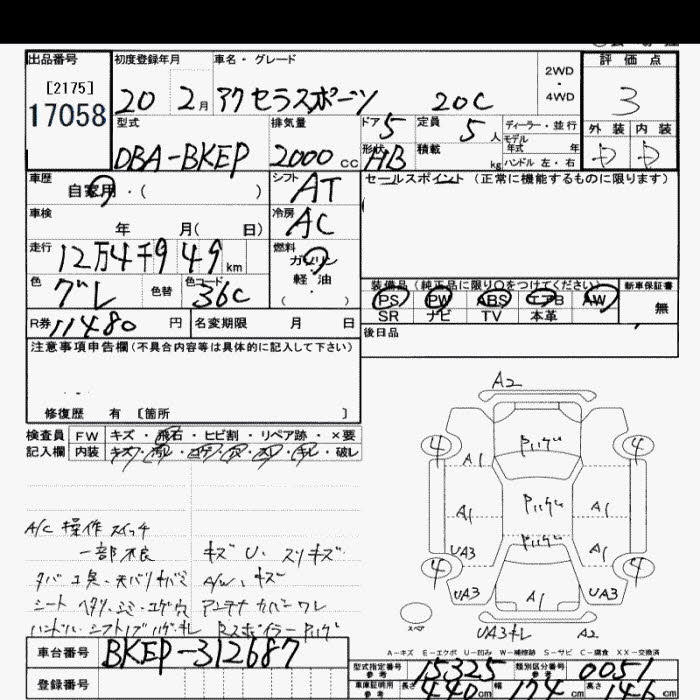 出品番号 初度登録年月 車名・グレード 2WD・4WD 評価点
[2175]
17058 20 2月 アクセラスポーツ 20C 3
型式 排気量 ドア 5 定員 5人 ディーラー・並行 外装 内装
モデル年式 年
DBA-BKEP 2000cc 形状 HB 積載 kg ハンドル 左・右 D D
車歴 自家用・( ) シフト AT セールスポイント (正常に機能するものに限ります)
車検 年 月( 日) 冷房 AC
走行 12万4千949km 燃料 ガソリン 軽油 ( ・ )
色 グレ 色替 色コード 36C 装備品(純正品に限り○をつけてください) 新車保証書
PS PW ABS エアB AW 無
R券 11480円 名変期限 月 日 SR ナビ TV 本革
後日品
注意事項申告欄(不具合内容等は具体的に記入して下さい)
修復歴 有 [箇所 ]
検査員 FW キズ・飛石・ヒビ割・リペア跡・×要
記入欄 内装 キズ・汚レ・コゲ・穴・スレ・キレ・破レ
A2
4 Pハゲ 4
A1
A1 Pハゲ A1
UA3 Pハゲ A1
4 4
UA3 A1 UA3
スペア UA3キレ A2
A/C 操作スイッチ
一部不良 キズU、スリキズ
A/W、キズ
シート ヘタリ・シミ・コゲ穴 アンテナカバーワレ
Rスポイラー Pハゲ
A-キズ E-エクボ U-凹み W-補修跡 S-サビ C-腐食 XX-交換済
車台番号 BKEP-312687 型式指定番号 15325 類別区分番号 0051
登録番号 車庫証明用参考 長さ 440cm 幅 174cm 高さ 146cm